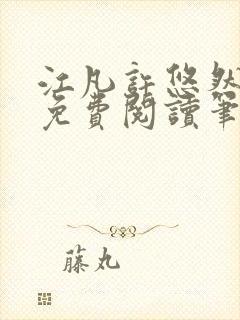 江凡許悠然
免費閱讀筆
藤丸